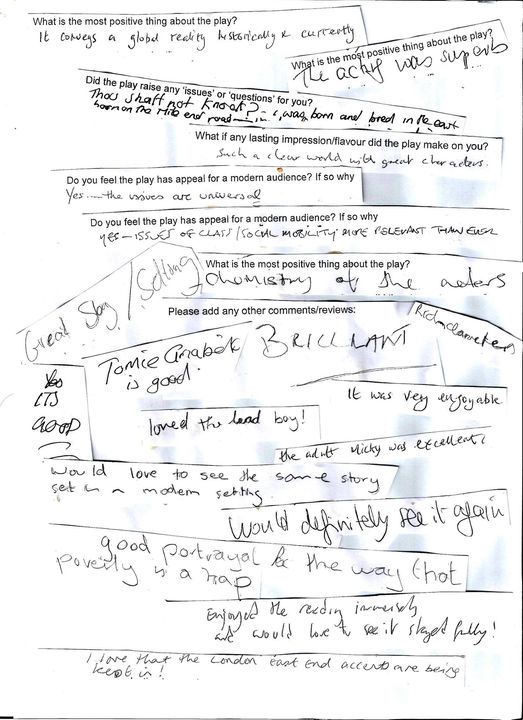 What is the most positive thing about the play?
It conveys a global reality historically & currently
What is the most positive thing about the play?
The acting was superb
Did the play raise any 'issues' or 'questions' for you?
Thou shalt not knock?
born on the Mile end road — I was born and bred in the east
What if any lasting impression/flavour did the play make on you?
Such a clear world with great characters.
Do you feel the play has appeal for a modern audience? If so why
Yes — the issues are universal
Do you feel the play has appeal for a modern audience? If so why
YES – ISSUES OF CLASS/SOCIAL MOBILITY MORE RELEVANT THAN EVER
Great Story / Setting
What is the most positive thing about the play?
Chemistry of the actors
Please add any other comments/reviews:
/ Rich characters
Tomie
is good.
BRILLIANT
Yes
ITS
GOOD
It was very enjoyable
loved the lead boy!
the adult Micky was excellent.
Would love to see the same story
set in a modern setting
Would definitely see it again
good portrayal of the way that
poverty is a trap
Enjoyed the reading immensely
and would love to see it staged fully!
I love that the London East End accents are being
kept in!